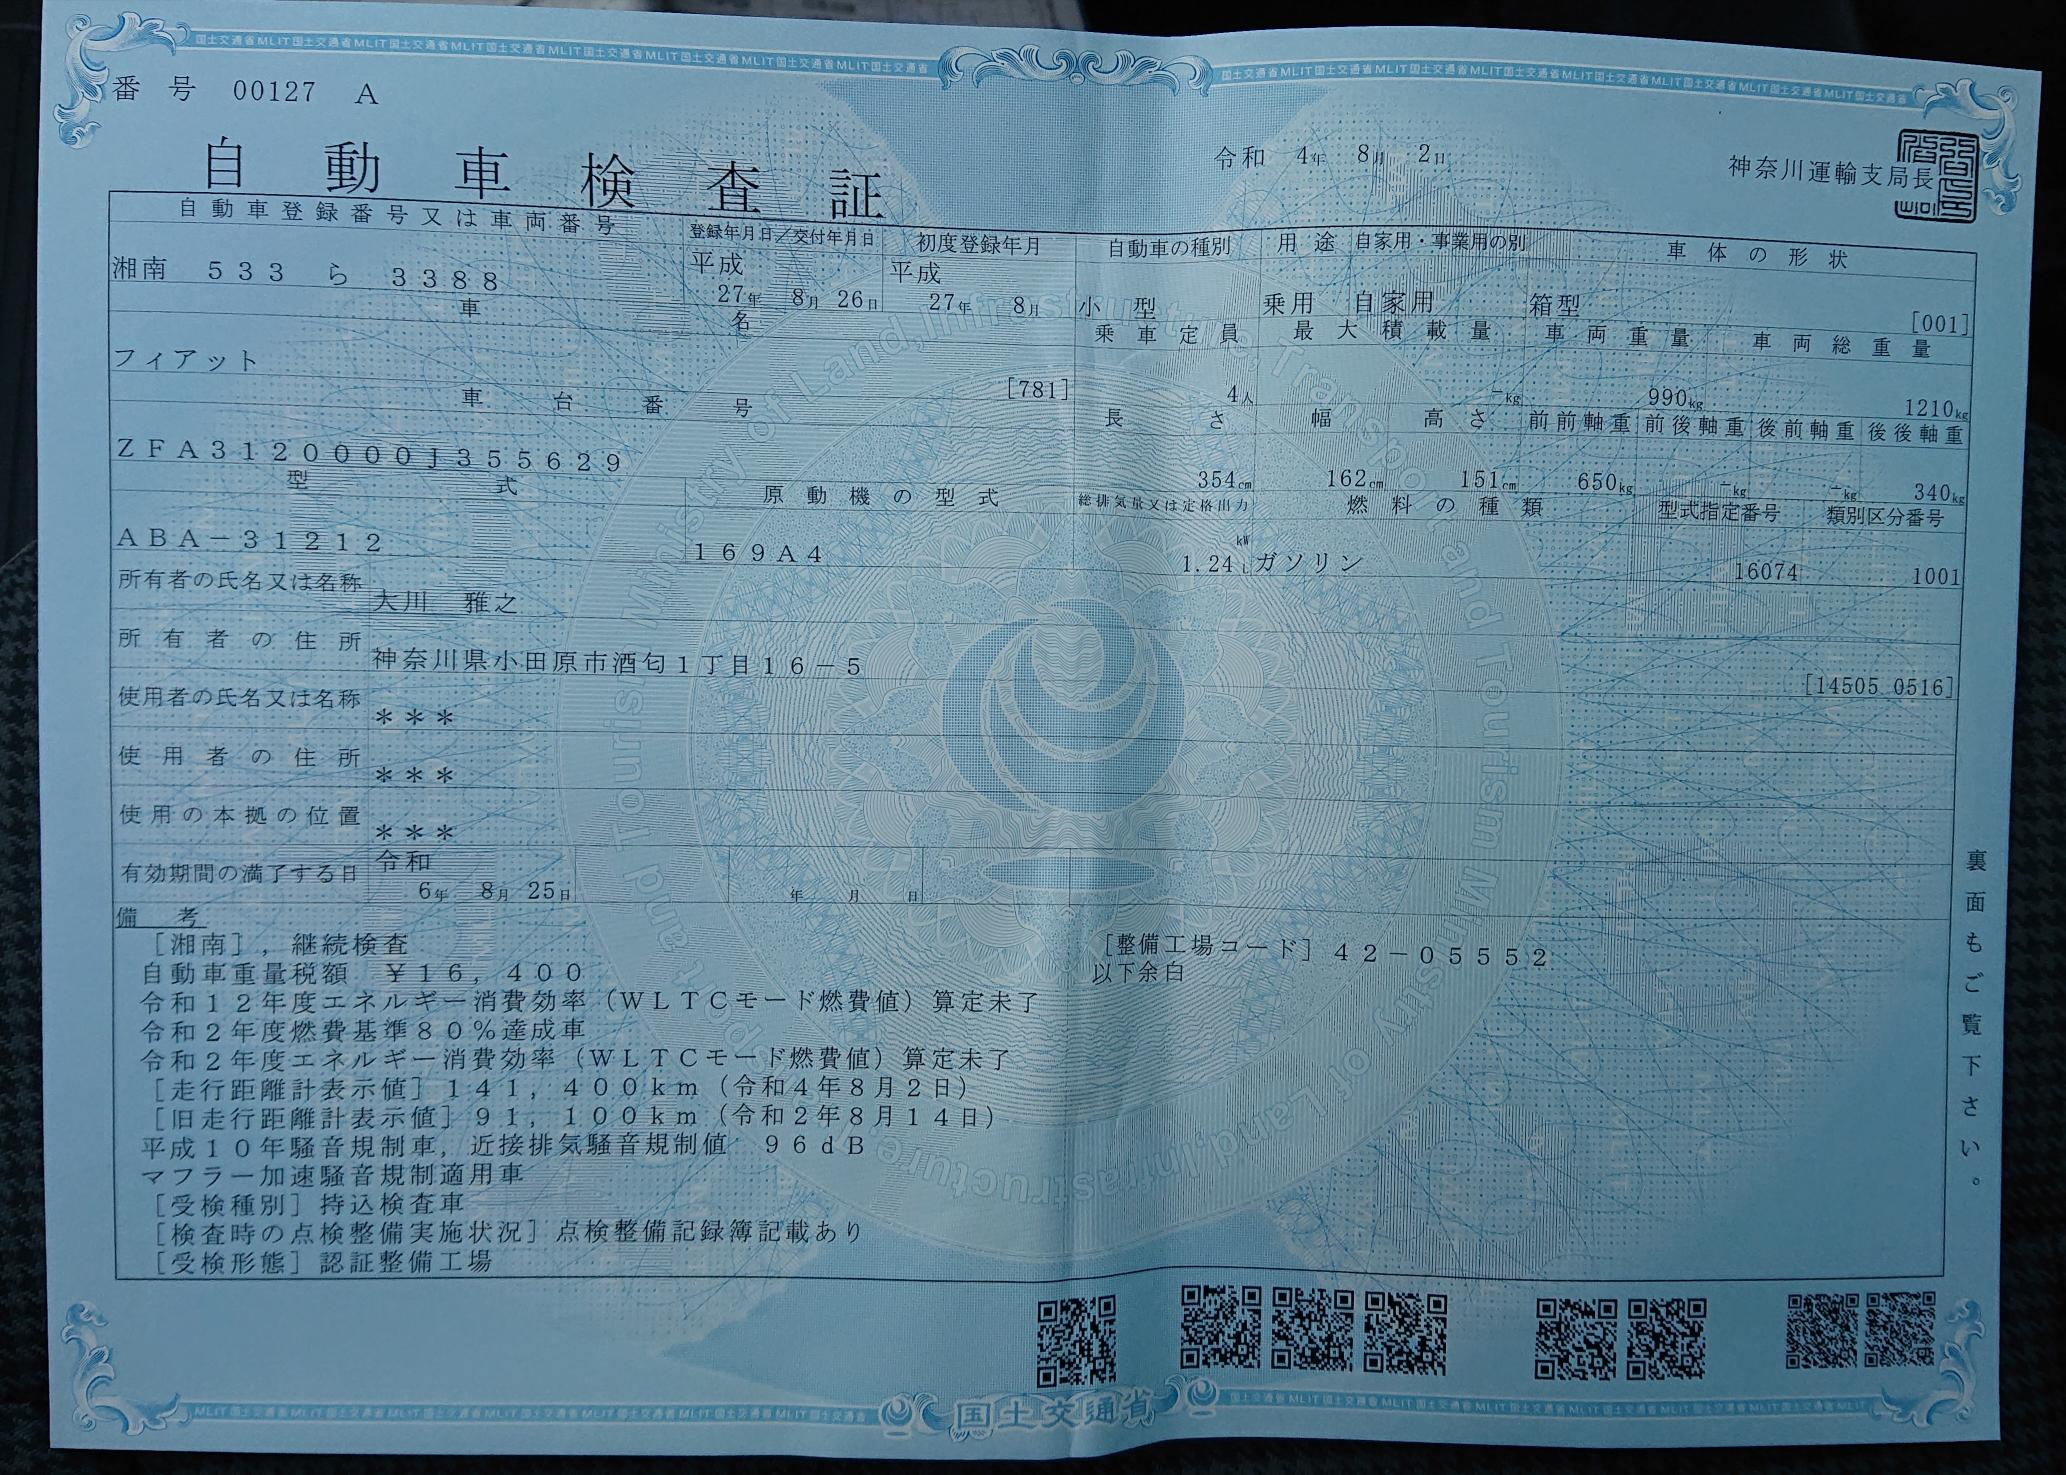 国土交通省MLIT国土交通省MLIT国土交通省MLIT国土交通省MLIT国土交通省MLIT国土交通省MLIT国土交通省MLIT国土交通省
番号 00127 A
自動車検査証
令和 4年 8月 2日
神奈川運輸支局長
自動車登録番号又は車両番号 登録年月日/交付年月日 初度登録年月 自動車の種別 用途 自家用・事業用の別 車体の形状
湘南 533 ら 3388 平成 27年 8月 26日 平成 27年 8月 小型 乗用 自家用 箱型 [001]
車名 乗車定員 最大積載量 車両重量 車両総重量
フィアット [781] 4人 -kg 990kg 1210kg
車台番号 長さ 幅 高さ 前前軸重 前後軸重 後前軸重 後後軸重
ZFA3120000J355629 354cm 162cm 151cm 650kg -kg -kg 340kg
型式 原動機の型式 総排気量又は定格出力 燃料の種類 型式指定番号 類別区分番号
ABA-31212 169A4 kW 1.24L ガソリン 16074 1001
所有者の氏名又は名称 大川 雅之
所有者の住所 神奈川県小田原市酒匂1丁目16-5 [14505 0516]
使用者の氏名又は名称 ***
使用者の住所 ***
使用の本拠の位置 ***
有効期間の満了する日 令和 6年 8月 25日 年 月 日
備考
[湘南],継続検査
自動車重量税額 ¥16,400
令和12年度エネルギー消費効率(WLTCモード燃費値)算定未了
令和2年度燃費基準80%達成車
令和2年度エネルギー消費効率(WLTCモード燃費値)算定未了
[走行距離計表示値]141,400km(令和4年8月2日)
[旧走行距離計表示値]91,100km(令和2年8月14日)
平成10年騒音規制車,近接排気騒音規制値 96dB
マフラー加速騒音規制適用車
[受検種別]持込検査車
[検査時の点検整備実施状況]点検整備記録簿記載あり
[受検形態]認証整備工場
[整備工場コード]42-05552
以下余白
裏面もご覧下さい。
Ministry of Land,Infrastructure,Transport and Tourism
国土交通省